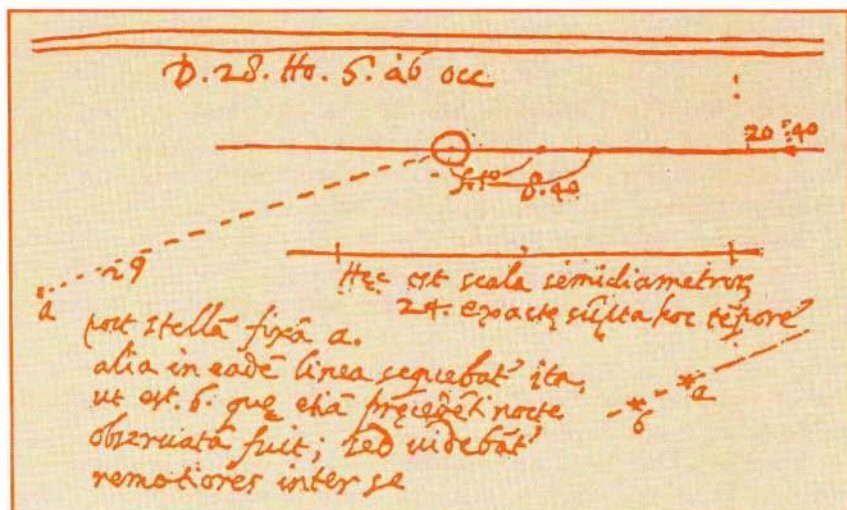 D. 28. Ho. 6. ab occ
20 : 40
8.40
29
a
Hęc est scala semidiametroꝝ
24. exactę sũpta hoc tẽpore
post stellã fixã a.
alia in eadẽ linea sequebat' ita,
ut est. b. quę etiã pręcedẽti nocte
obseruata fuit; sed uidebãt'
remotiores inter se
b a